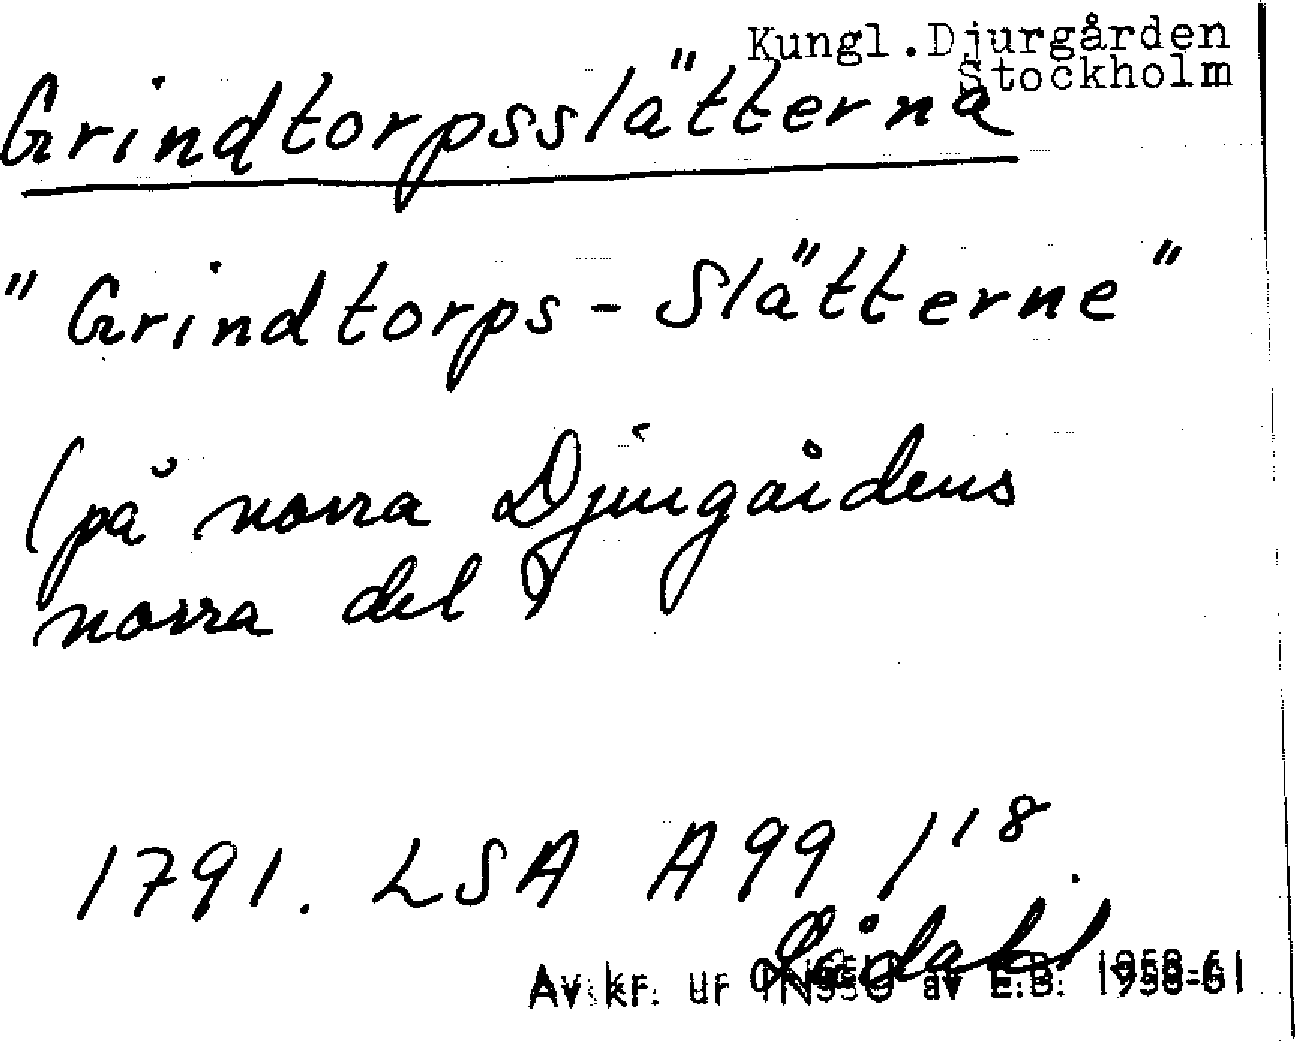 Kungl.Djurgården
Stockholm
Grindtorpsslätterna
"Grindtorps-Slätterne"
(på norra Djurgårdens
norra del
1791. LSA A99 1^18.
Av kr. ur av E.B. 1958-61